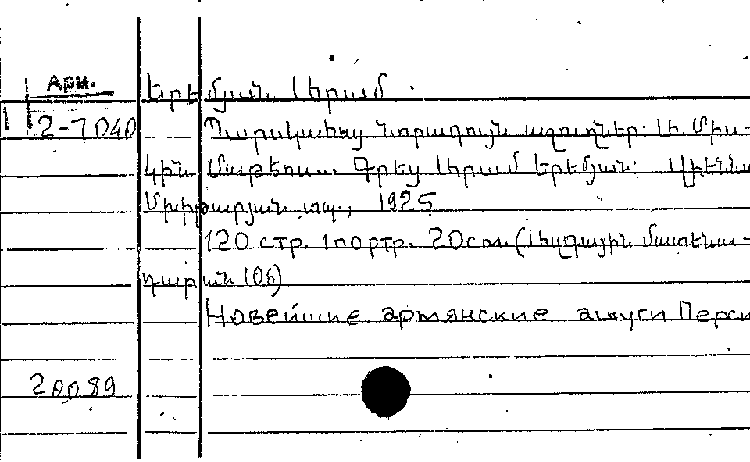 Арм.
Երեմյան Արամ
2-7040
Պարսկահայ նորագույն աշուղներ: Ա Միս-
կին Մաթևոս... Գրեց Արամ Երեմյան: Վիեննա
Մխիթարյան տպ., 1925
120 стр. 1 портр. 20 см (Ազգային մատենա-
դարան 106)
Новейшие армянские ашуги Перси
20089